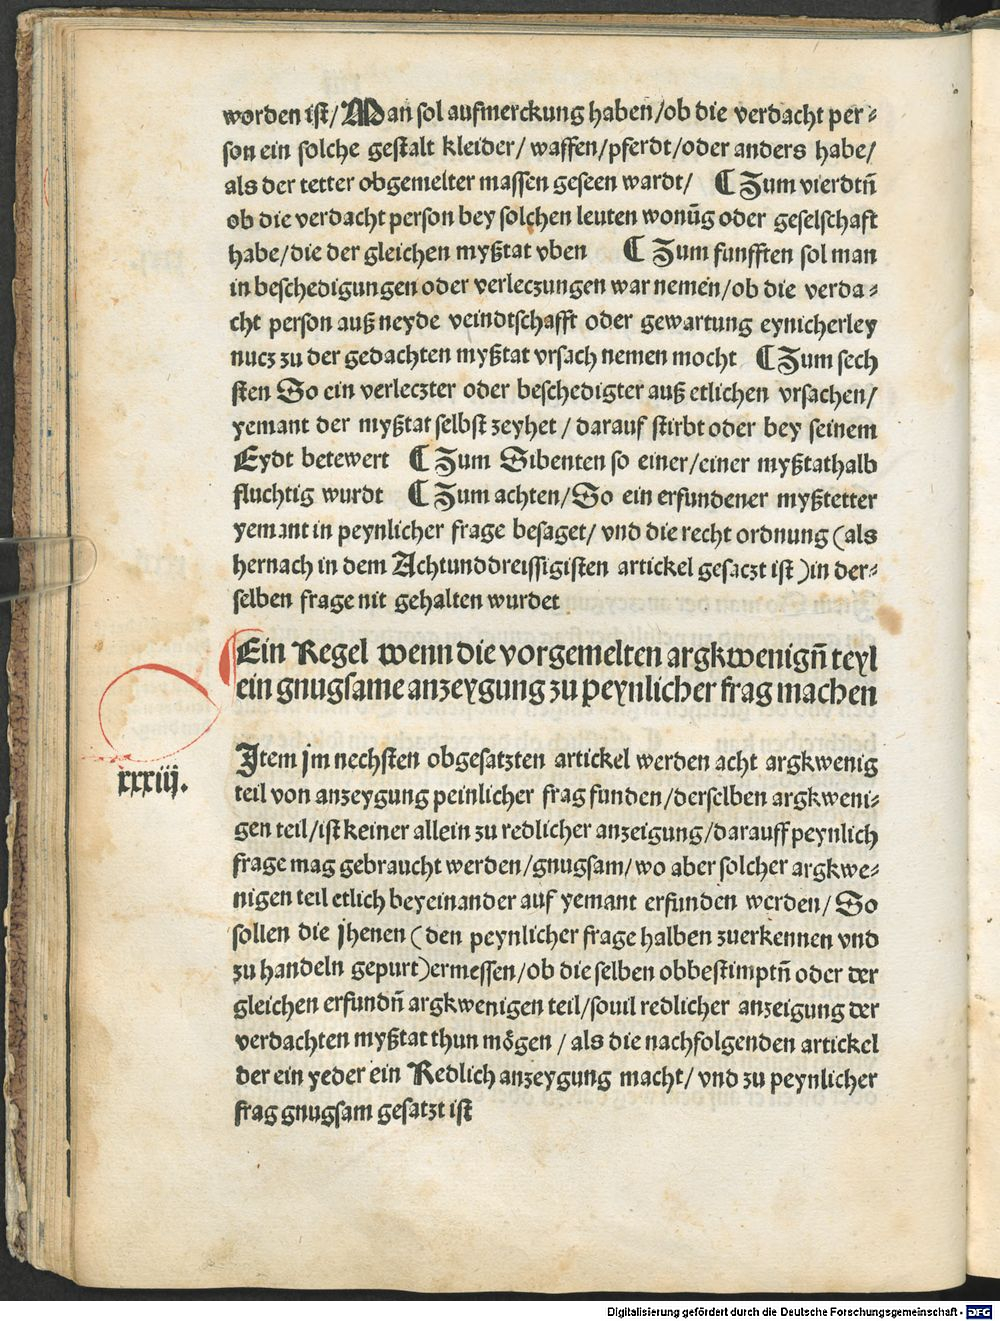 worden ist/ Man sol aufmerckung haben/ob die verdacht per⸗
son ein solche gestalt kleider/ waffen/pferdt/oder anders habe/
als der tetter obgemelter massen geseen wardt/ ¶ Zum vierdtn̄
ob die verdacht person bey solchen leuten wonūg oder geselschaft
habe/die der gleichen myßtat vben ¶ Zum funfften sol man
in beschedigungen oder verleczungen war nemen/ob die verda⸗
cht person auß neyde veindtschafft oder gewartung eynicherley
nucz zu der gedachten myßtat vrsach nemen mocht ¶ Zum sech
sten So ein verleczter oder beschedigter auß etlichen vrsachen/
yemant der myßtat selbst zeyhet/ darauf stirbt oder bey seinem
Eydt betewert ¶ Zum Sibenten so einer/einer myßtathalb
fluchtig wurdt ¶ Zum achten/So ein erfundener myßtetter
yemant in peynlicher frage besaget/ vnd die recht ordnung (als
hernach in dem Achtunddreissigisten artickel gesaczt ist) in der⸗
selben frage nit gehalten wurdet
Ein Regel wenn die vorgemelten argkwenign̄ teyl
ein gnugsame anzeygung zu peynlicher frag machen
xxxiij.
Item jm nechsten obgesatzten artickel werden acht argkwenig
teil von anzeygung peinlicher frag funden/derselben argkweni⸗
gen teil/ist keiner allein zu redlicher anzeigung/darauff peynlich
frage mag gebraucht werden/gnugsam/wo aber solcher argkwe⸗
nigen teil etlich beyeinander auf yemant erfunden werden/ So
sollen die jhenen (den peynlicher frage halben zuerkennen vnd
zu handeln gepurt) ermessen/ob die selben obbestimptn̄ oder der
gleichen erfundn̄ argkwenigen teil/souil redlicher anzeigung der
verdachten myßtat thun mögen/ als die nachfolgenden artickel
der ein yeder ein Redlich anzeygung macht/ vnd zu peynlicher
frag gnugsam gesatzt ist
Digitalisierung gefördert durch die Deutsche Forschungsgemeinschaft - DFG